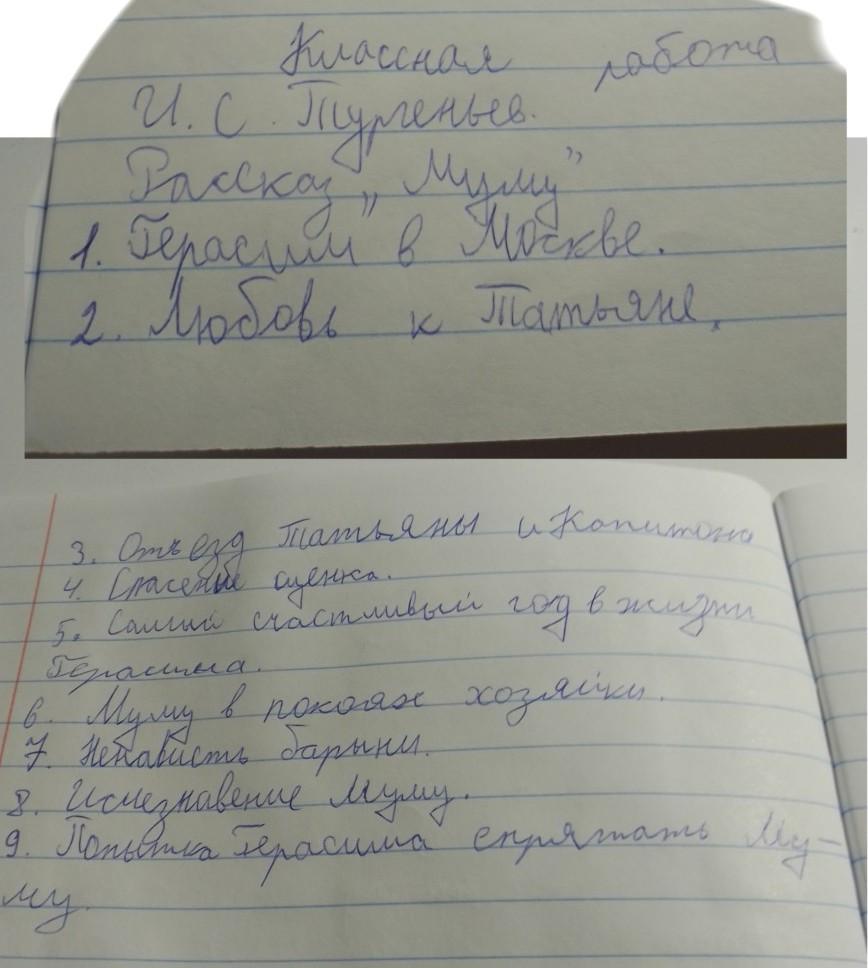 Классная работа
И. С. Тургеньев.
Рассказ „Муму”
1. Герасим в Москве.
2. Любовь к Татьяне.
3. Отъезд Татьяны и Капитона
4. Спасение щенка.
5. Самый счастливый год в жизни
Герасима.
6. Муму в покоях хозяйки.
7. Ненависть барыни.
8. Исчезнавение Муму.
9. Попытка Герасима спрятать Му-
му.